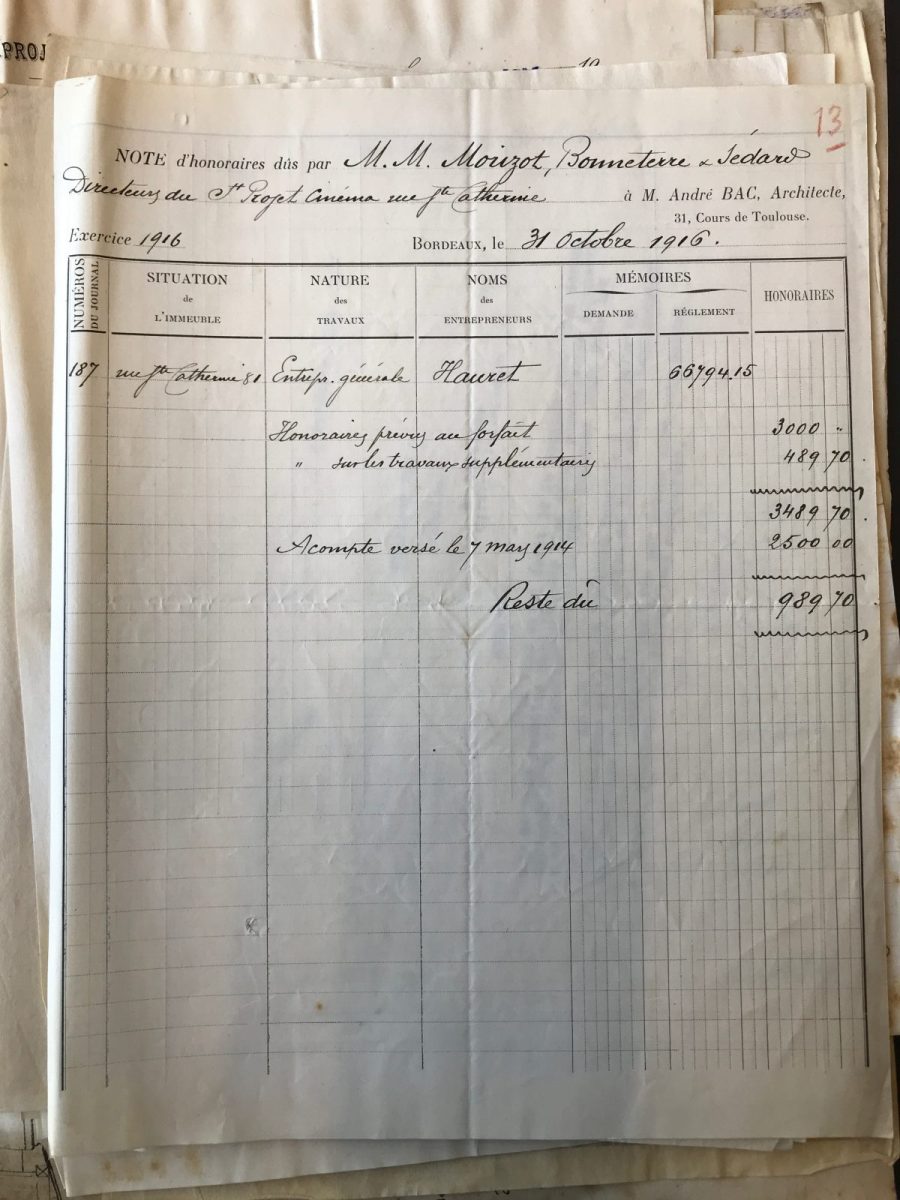 PROJ
13
NOTE d'honoraires dûs par M. M. Mouzot, Bonneterre & Sédard
Directeurs du St Projet Cinéma rue Ste Catherine à M. André BAC, Architecte,
31, Cours de Toulouse.
Exercice 1916 BORDEAUX, le 31 Octobre 1916.
NUMÉROS DU JOURNAL
SITUATION de L'IMMEUBLE
NATURE des TRAVAUX
NOMS des ENTREPRENEURS
MÉMOIRES
DEMANDE
RÉGLEMENT
HONORAIRES
187 rue Ste Catherine 81 Entrepr. générale Hauret 66794.15
Honoraires prévus au forfait 3000 "
" sur les travaux supplémentaires 489 70
3489 70
Acompte versé le 7 mars 1914 2500 00
Reste dû 989 70